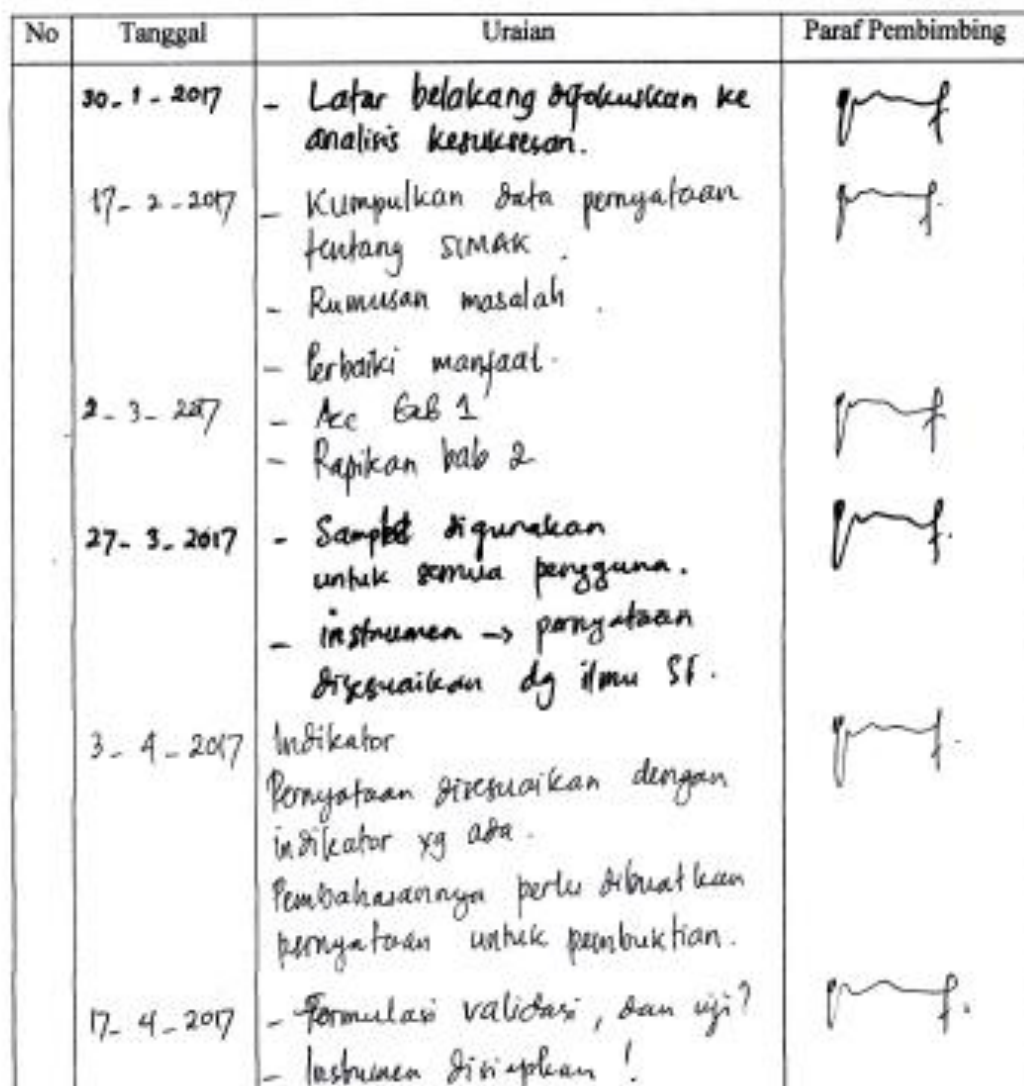 No Tanggal Uraian Paraf Pembimbing
30-1-2017 - Latar belakang difokuskan ke
analisis kesuksesan.
17-2-2017 - Kumpulkan data pernyataan
tentang SIMAK.
- Rumusan masalah.
- Perbaiki manfaat.
2-3-2017 - Acc Bab 1
- Rapikan bab 2
27-3-2017 - Sampel digunakan
untuk semua pengguna.
- instrumen -> pernyataan
disesuaikan dg ilmu SI.
3-4-2017 Indikator
Pernyataan disesuaikan dengan
indikator yg ada.
Pembahasannya perlu dibuatkan
pernyataan untuk pembuktian.
17-4-2017 - Formulasi validasi, dan uji?
- Instrumen disiapkan!